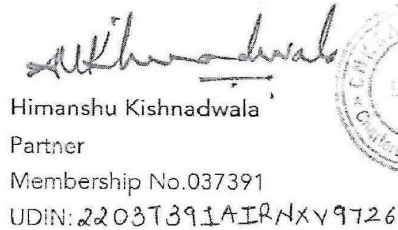 Himanshu Kishnadwala
Partner
Membership No.037391
UDIN: 22037391AIRNXV9726